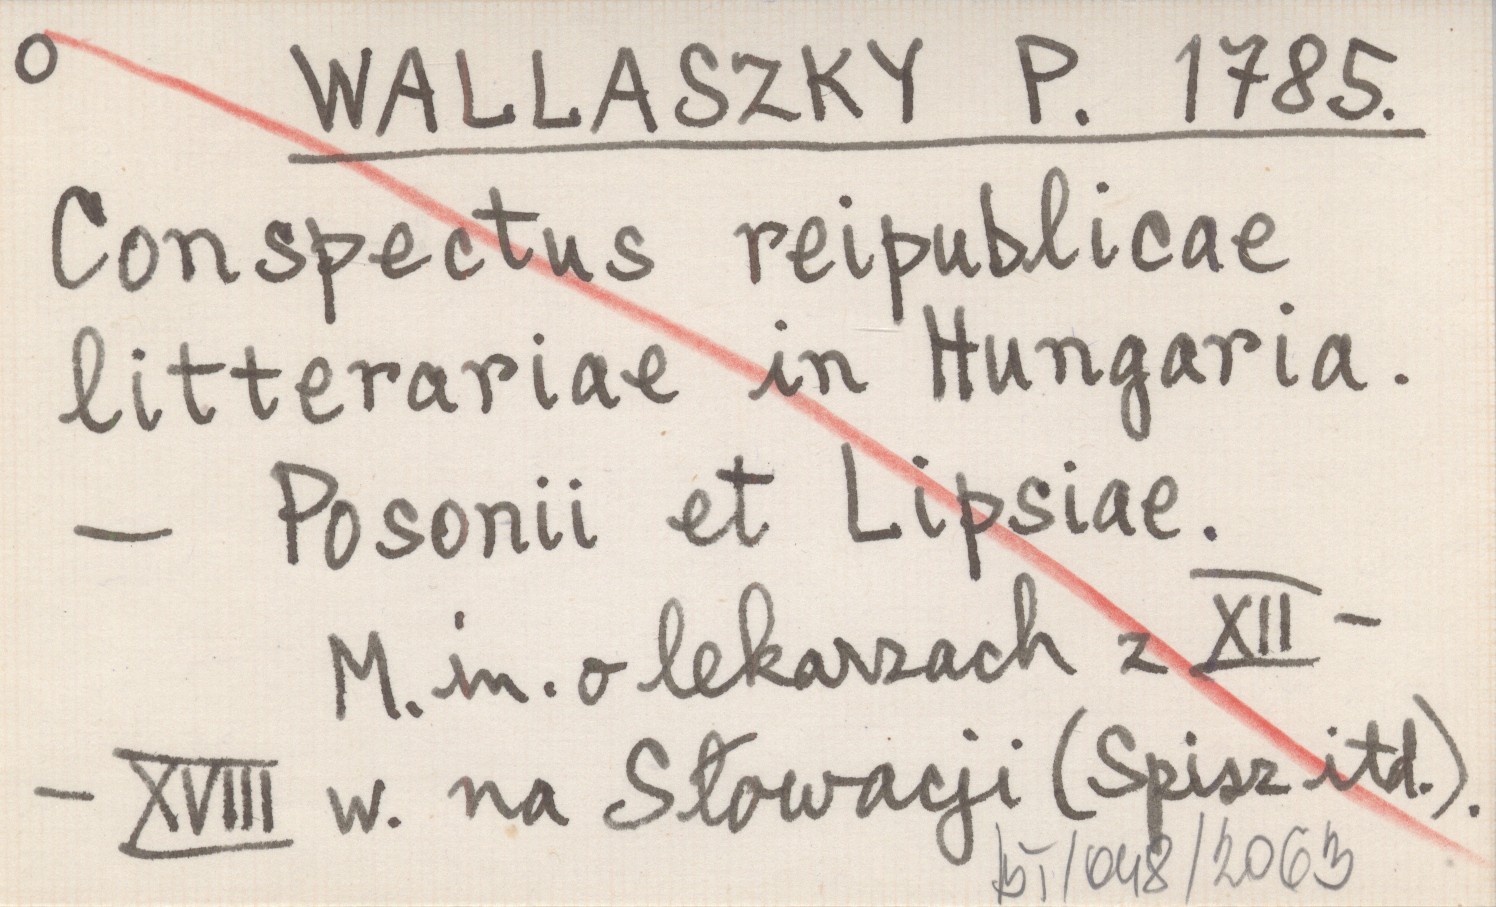 o WALLASZKY P. 1785.
Conspectus reipublicae
litterariae in Hungaria.
— Posonii et Lipsiae.
M. in. o lekarzach z XII -
- XVIII w. na Słowacji (Spisz itd.).
/048/2063